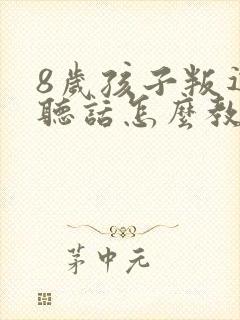 8歲孩子叛
聽話怎麼教
茅中元